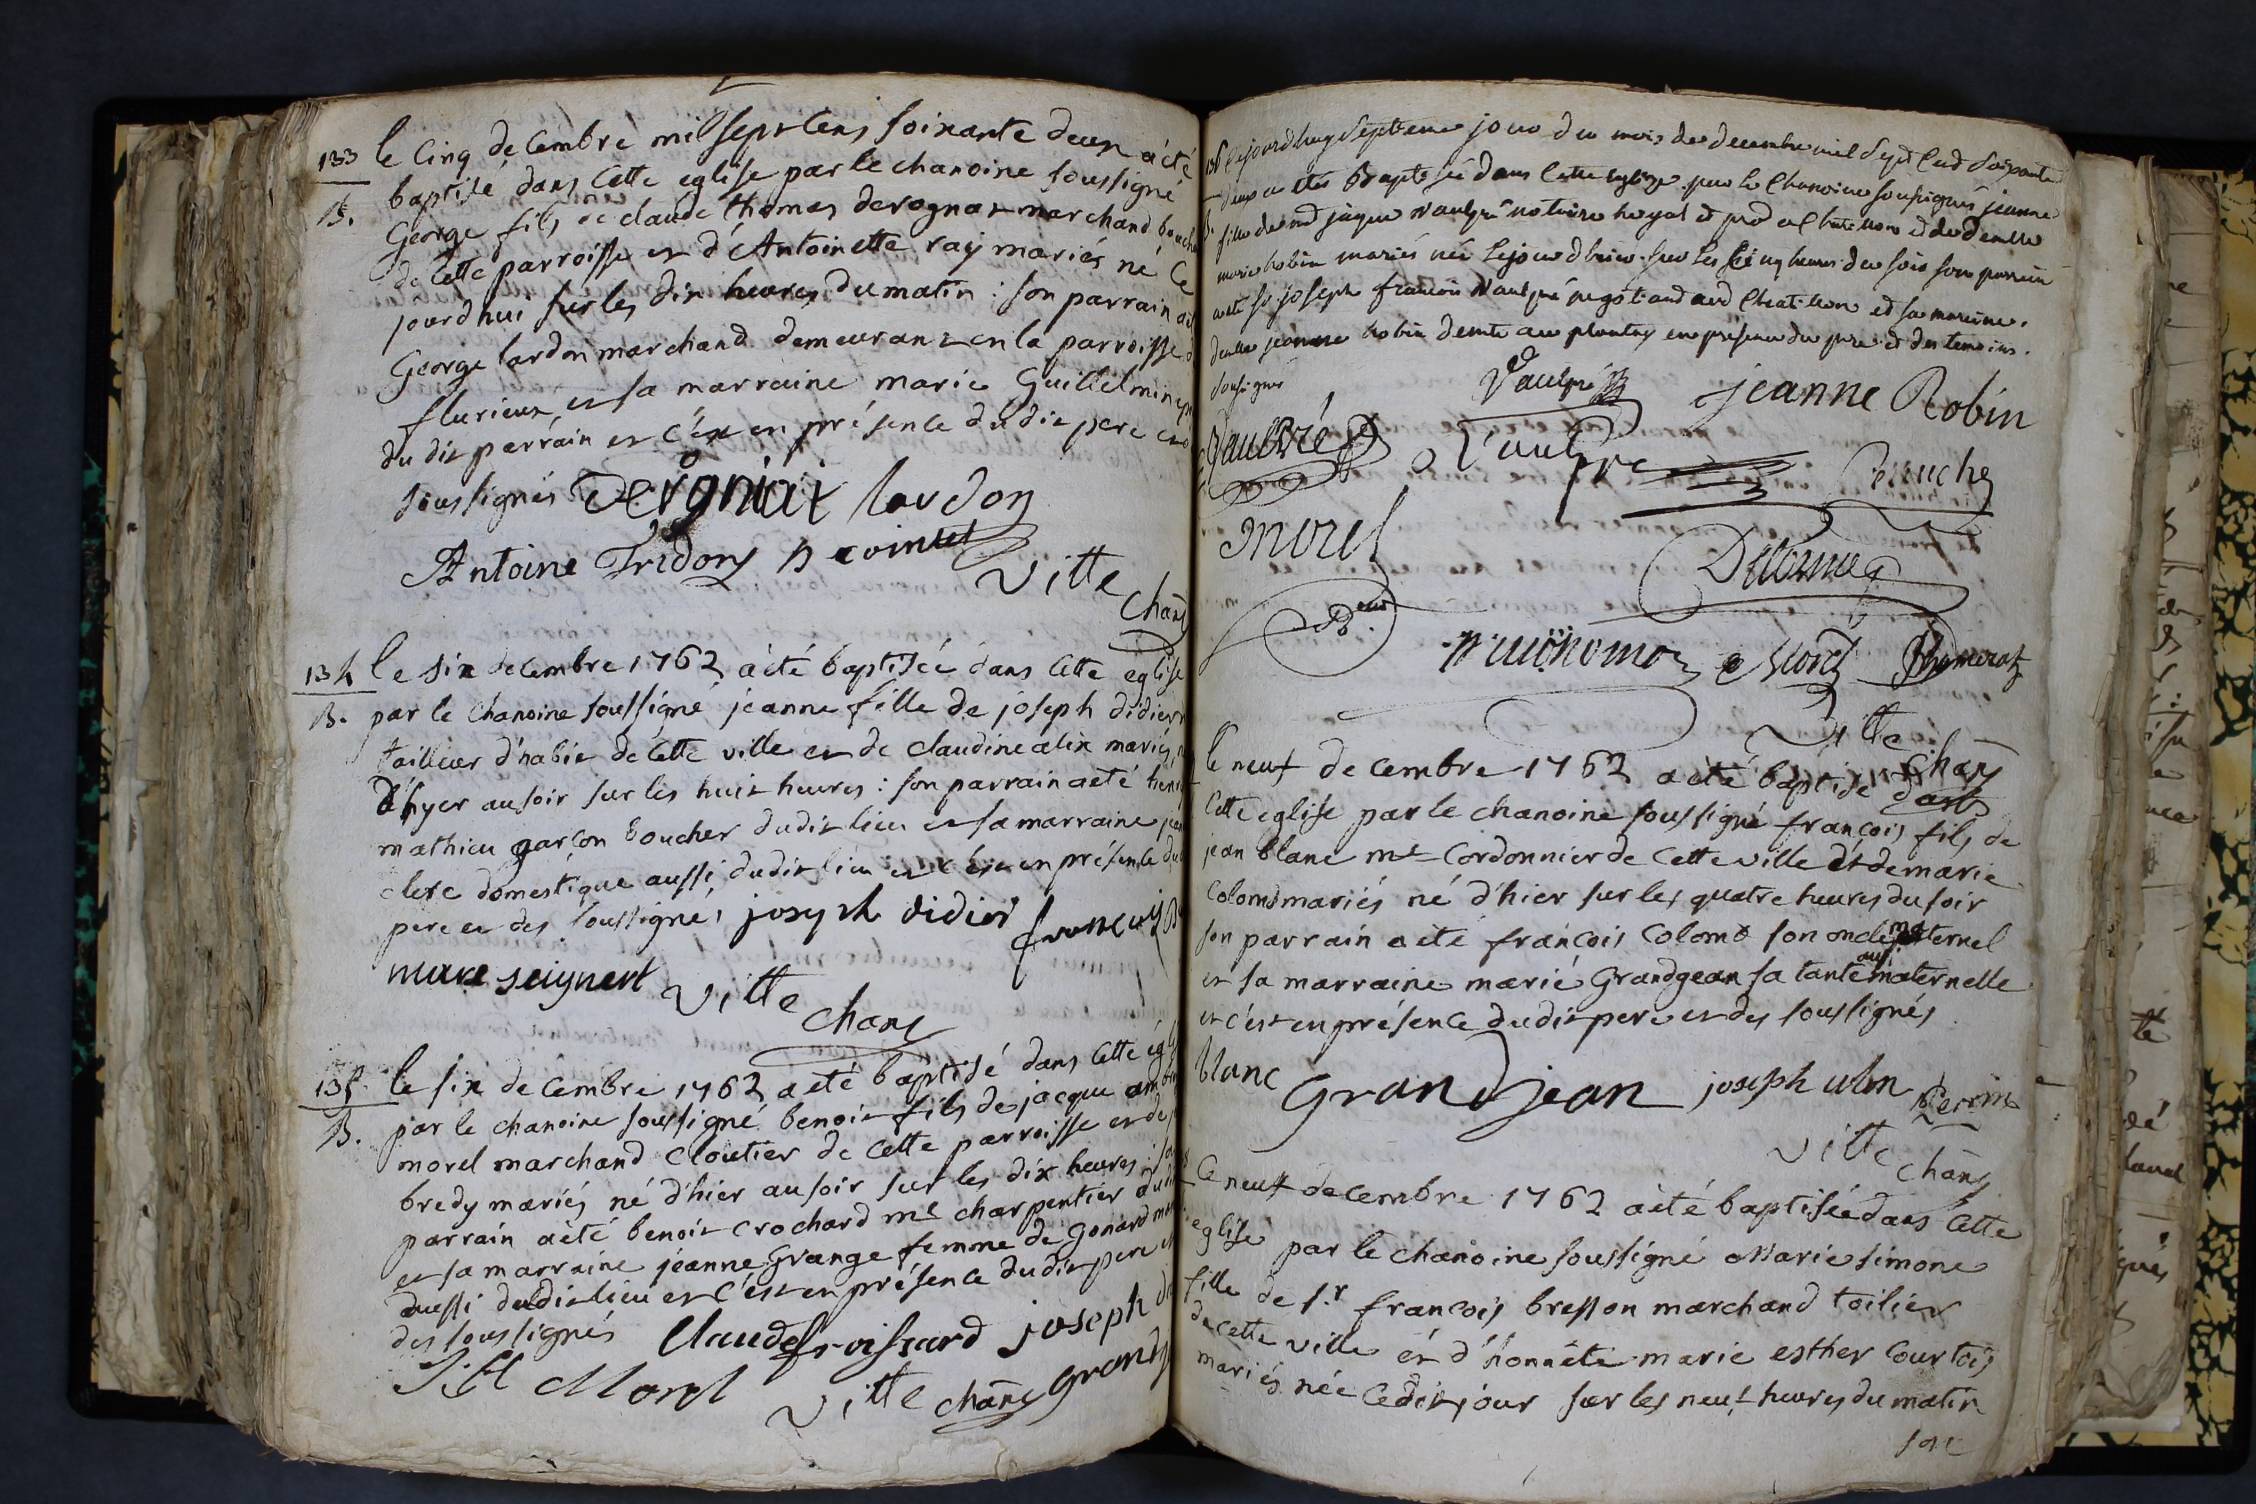 133
B.
le Cinq decembre mil sept Cens soixante deux a été
baptisé dans Cette eglise par le chanoine soussigné
George fils de claude thomas derognat marchand bouche
de Cette parroisse et d'Antoinette ray mariés né Ce
jourd'hui sur les dix heures du matin : son parrain a
George lardon marchand demeurant en la parroisse
flurieux et sa marraine marie Guillelmin
du dit parrain et c'est en présence du dit pere et
soussignés Derognat lardon
Antoine Tridon
Vitte
chan
134
B.
le six decembre 1762 a été baptisée dans Cette eglise
par le Chanoine soussigné jeanne fille de joseph didier
tailleur d'habit de Cette ville et de claudine alix mariés
d'hyer au soir sur les huit heures : son parrain a été
mathieu garçon boucher dudit lieu et sa marraine
clerc domestique aussi dudit lieu et c'est en présence du
pere et des soussignés joseph didier francois
marc seignert Vitte
chan
135
B.
le six decembre 1762 a eté baptisé dans Cette
par le chanoine soussigné benoit fils de jacque
morel marchand Cloutier de Cette parroisse et de
bredy mariés né d'hier au soir sur les dix heures :
parrain a été benoit crochard me charpentier
et sa marraine jeanne Grange femme de Gonard
aussi dudit lieu et c'est en présence du dit pere
des soussignés Claude froissard joseph
Morel Vitte chane
136
B.
Cejourdhuy septieme jour du mois de decembre mil Sept Cent Soixante
deux a etés Baptisée dans Cette eglize par le Chanoine sousignés jeanne
fille de jaque Vaulpré notaire Royal et a Chatillon et de
marie Robin mariés née le jour d'hier sur les cinq heures du soir son parrein
a eté joseph francois Vaulpré negotiand aud Chatillon et sa mareine
jeanne Robin au plantay en presence du pere et des temoins
sousignes
Vaulpré jeanne Robin
Vaulpré Vaulpré
morel
Morel
Vitte
chan
le neuf decembre 1762 a été baptisé dans
Cette eglise par le chanoine soussigné francois fils de
jean blanc me Cordonnier de Cette ville et de marie
Colomb mariés né d'hier sur les quatre heures du soir
son parrain a été francois Colomb son oncle maternel
et sa marraine marie Grandgean sa tante aussi maternelle
et c'est en présence du dit pere et des soussignés
blanc Grandjean joseph Perrin
Vitte chane
le neuf decembre 1762 a été baptisée dans Cette
eglise par le chanoine soussigné Marie simone
fille de sr. francois bresson marchand toilier
de cette ville et d'honnête marie esther Courtois
mariés née Cedit jour sur les neuf heures du matin
son